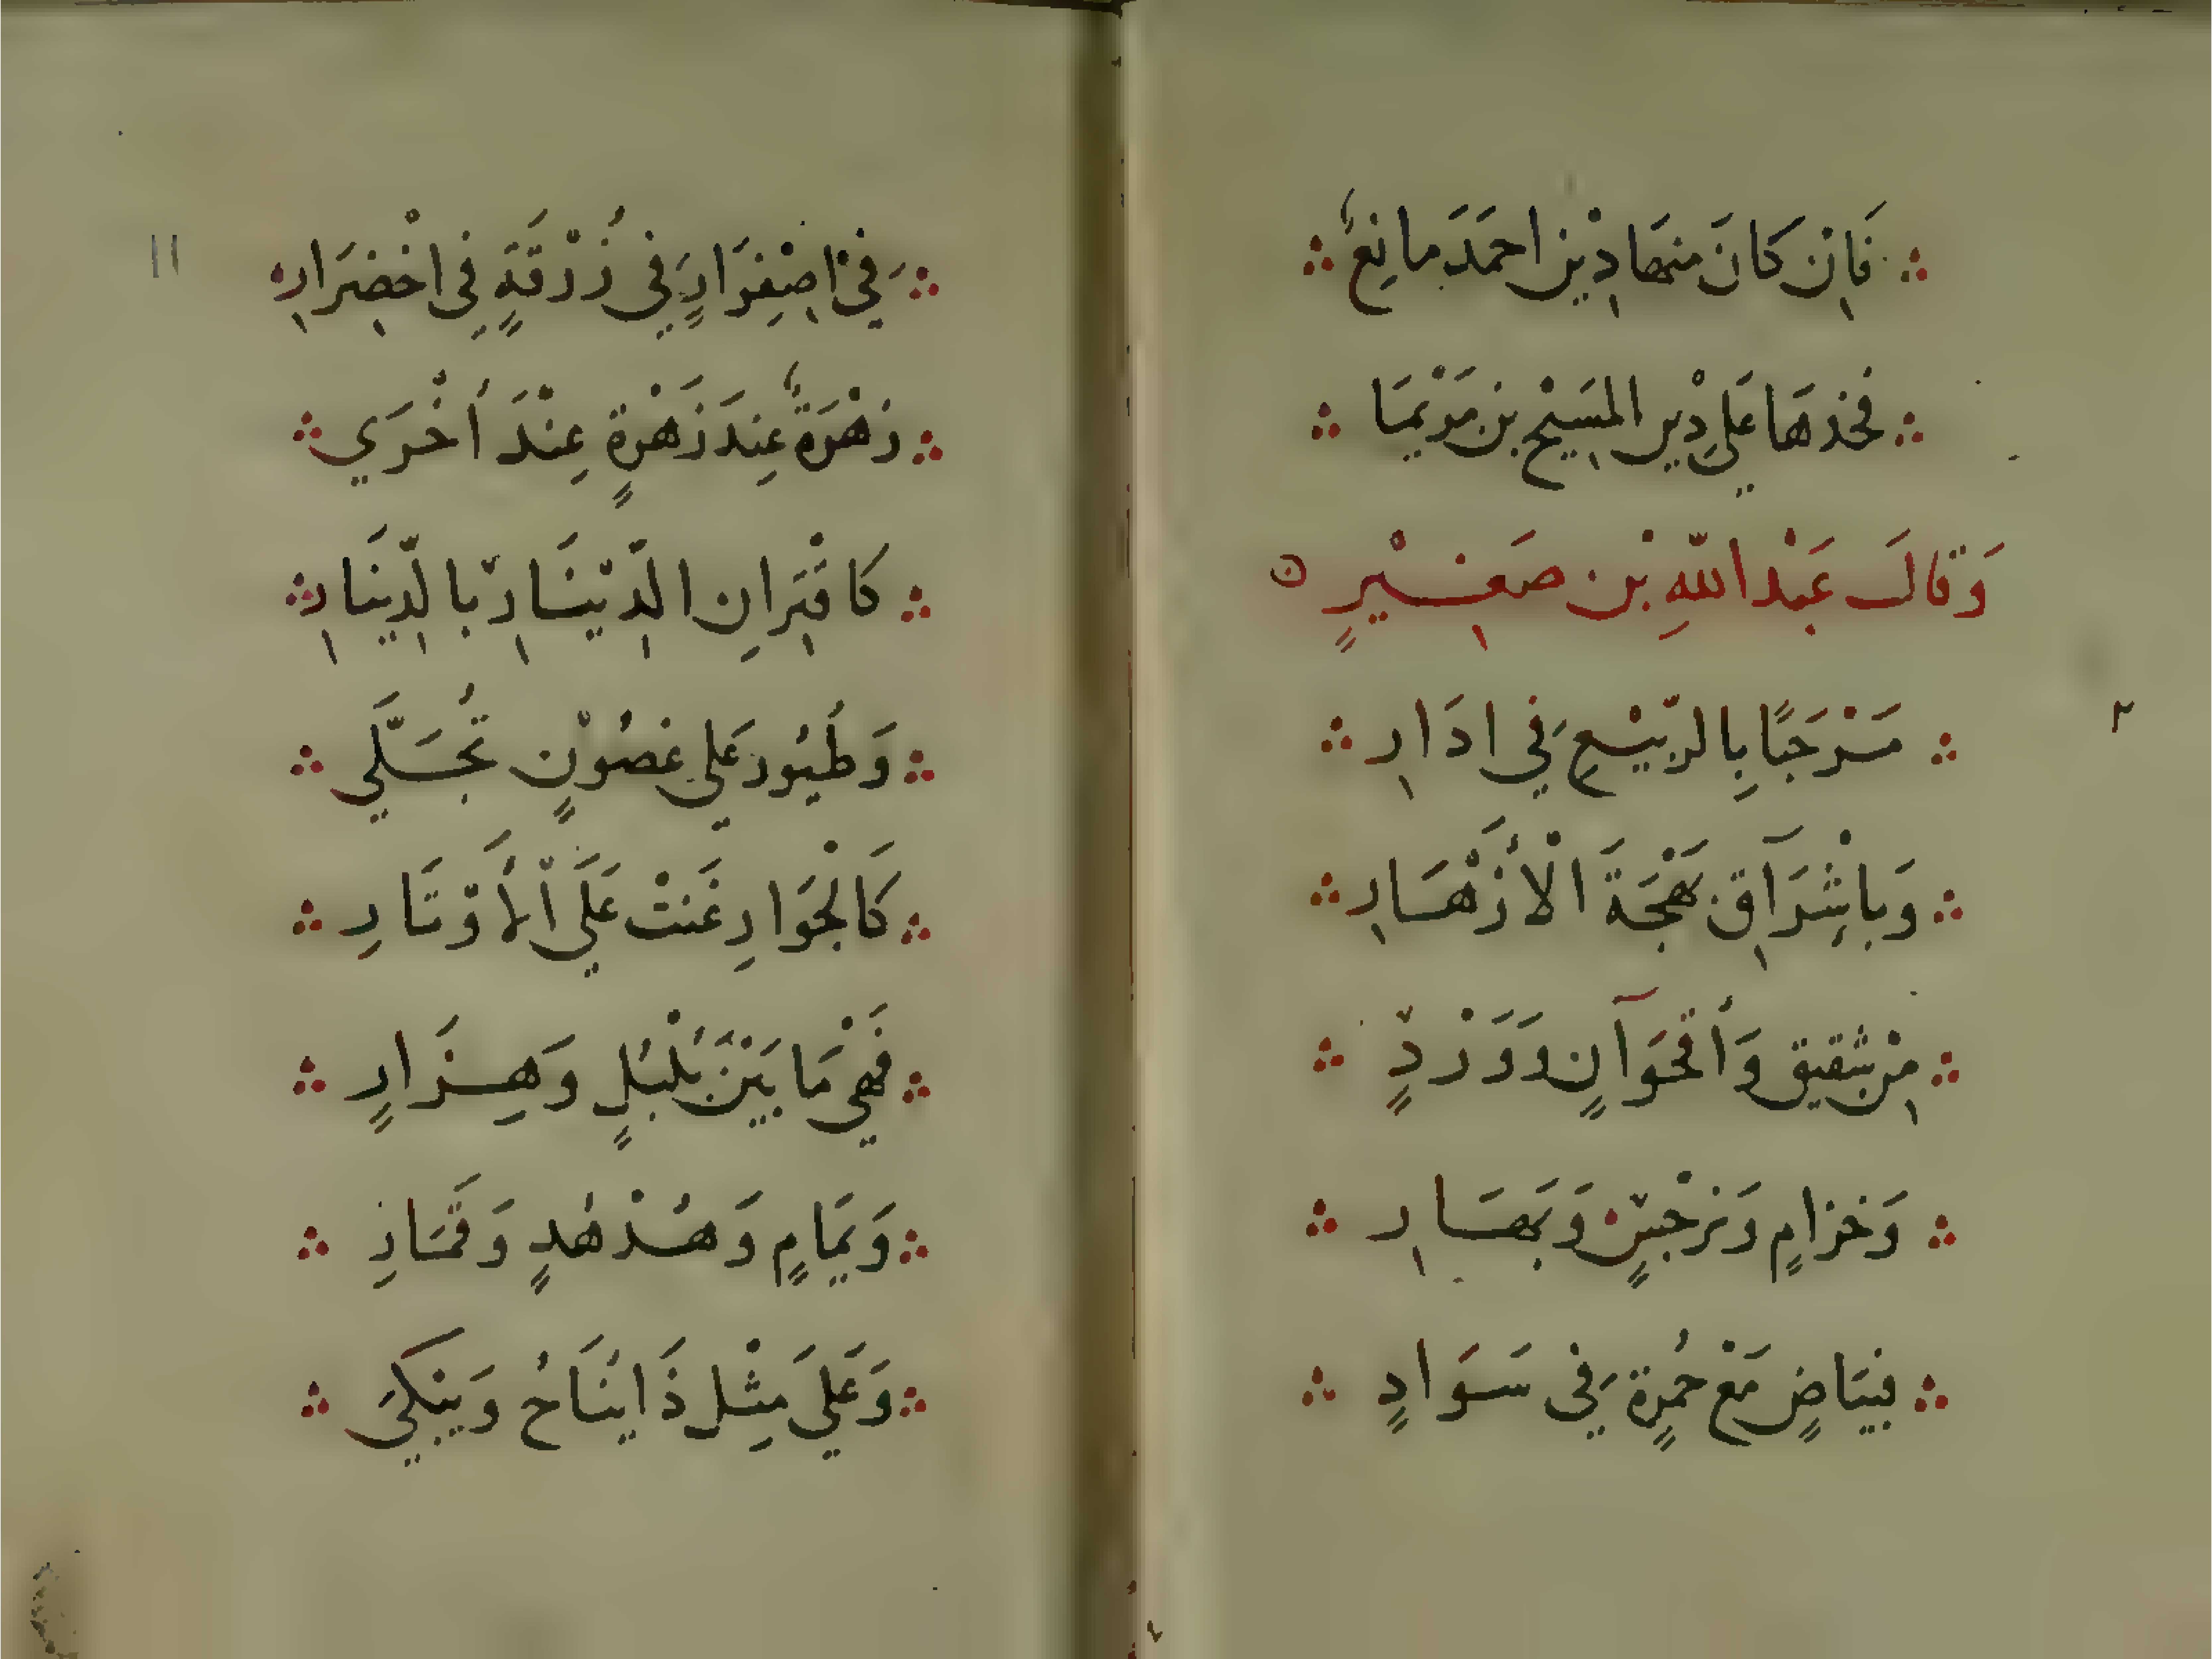 فَاِنْ كَانَ مِنهَا دِيْن احمَدَ مانِعٌ
فَخُذهَا عَلي دِيْنِ المسَيْح بن مَرْيمَا
وَقالَ عَبْد اللّهِ بْن صَغِيْرٍ
مَرْحَبًا بِالرَّبيْعِ في ادَارِ
وَبِاشْرَاقِ بَهْجَةَ الْأزْهَارِ
مِنْ شقيق وَأُقحُوَآنٍ وَوَرْدٍ
وَخزامٍ وَنرْجسٍ وَبَهَارِ
فبيَاضٍ مَعْ حُمرةٍ في سَوَادٍ
في اصْفِرَارٍ في زُرْقَةٍ في اخْضِرَارِ
زهْرَةٌ عِندَ زَهْرةٍ عِنْدَ أخْرَي
كَاقْتِرَانِ الدِّيْنَارِ بالدِّينَارِ
وَطُيُور عَلي غصُوْنٍ تُجَلَّي
كَالْجَوَارِ غَنتْ عَلَي الْأوْتَارِ
فَهْيَ مَا بَيْنَ بُلْبُلٍ وَهِزَارٍ
وَيمَامٍ وَهُدْهُدٍ وَقمَارِ
وَعَليَ مِثْل ذَا يُنَاحُ وَيبْكيَ
١١
٢